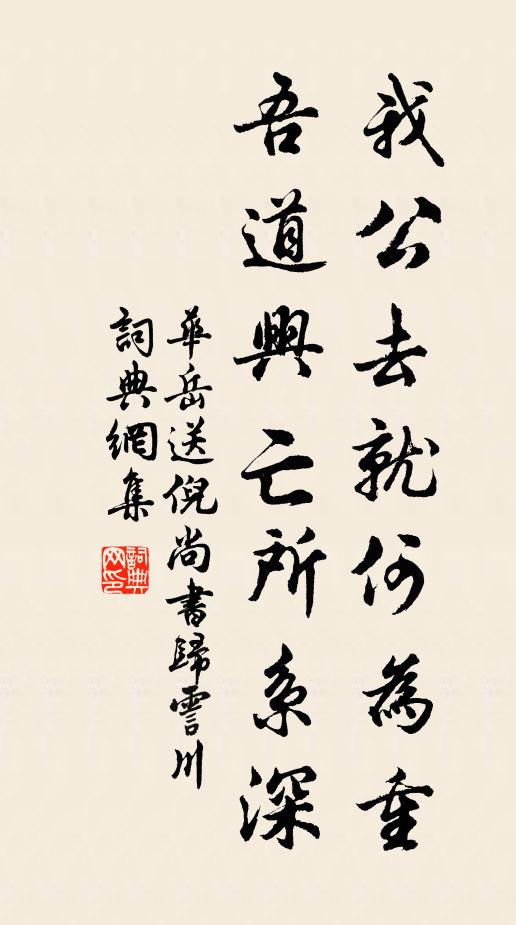 我公去就何為重
吾道興亡所系深
華岳送倪尚書歸霅川
詞典網集
詞典网印